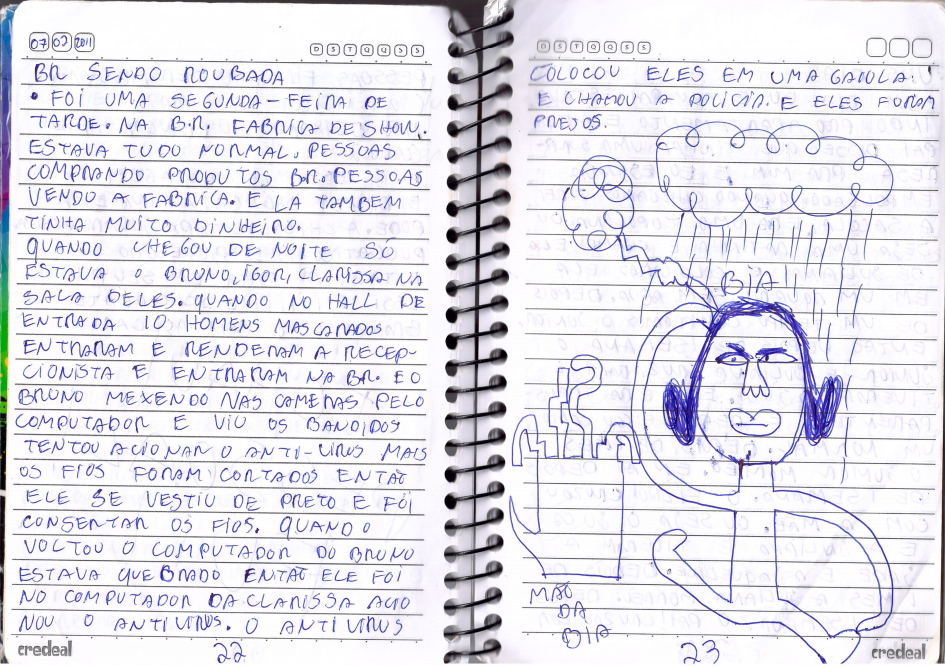 07 02 2011
D S T Q Q S S
BR SENDO ROUBADA
• FOI UMA SEGUNDA-FEIRA DE
TARDE. NA B.R. FABRICA DE SHOW.
ESTAVA TUDO NORMAL. PESSOAS
COMPRANDO PRODUTOS BR. PESSOAS
VENDO A FABRICA. E LA TAMBEM
TINHA MUITO DINHEIRO.
QUANDO CHEGOU DE NOITE SÓ
ESTAVA O BRUNO, IGOR, CLARISSA NA
SALA DELES. QUANDO NO HALL DE
ENTRADA 10 HOMENS MASCARADOS
ENTRARAM E RENDERAM A RECEP-
CIONISTA E ENTRARAM NA BR. E O
BRUNO MEXENDO NAS CAMERAS PELO
COMPUTADOR E VIU OS BANDIDOS
TENTOU ACIONAR O ANTI-VIRUS MAIS
OS FIOS FORAM CORTADOS ENTÃO
ELE SE VESTIU DE PRETO E FOI
CONSERTAR OS FIOS. QUANDO
VOLTOU O COMPUTADOR DO BRUNO
ESTAVA QUEBRADO ENTÃO ELE FOI
NO COMPUTADOR DA CLARISSA ACIO
NOU O ANTIVIRUS. O ANTI VIRUS
credeal
22
D S T Q Q S S
COLOCOU ELES EM UMA GAIOLA.
E CHAMOU A POLICIA. E ELES FORAM
PRESOS.
BIA!!
MÃO
DA
BIA
23
credeal